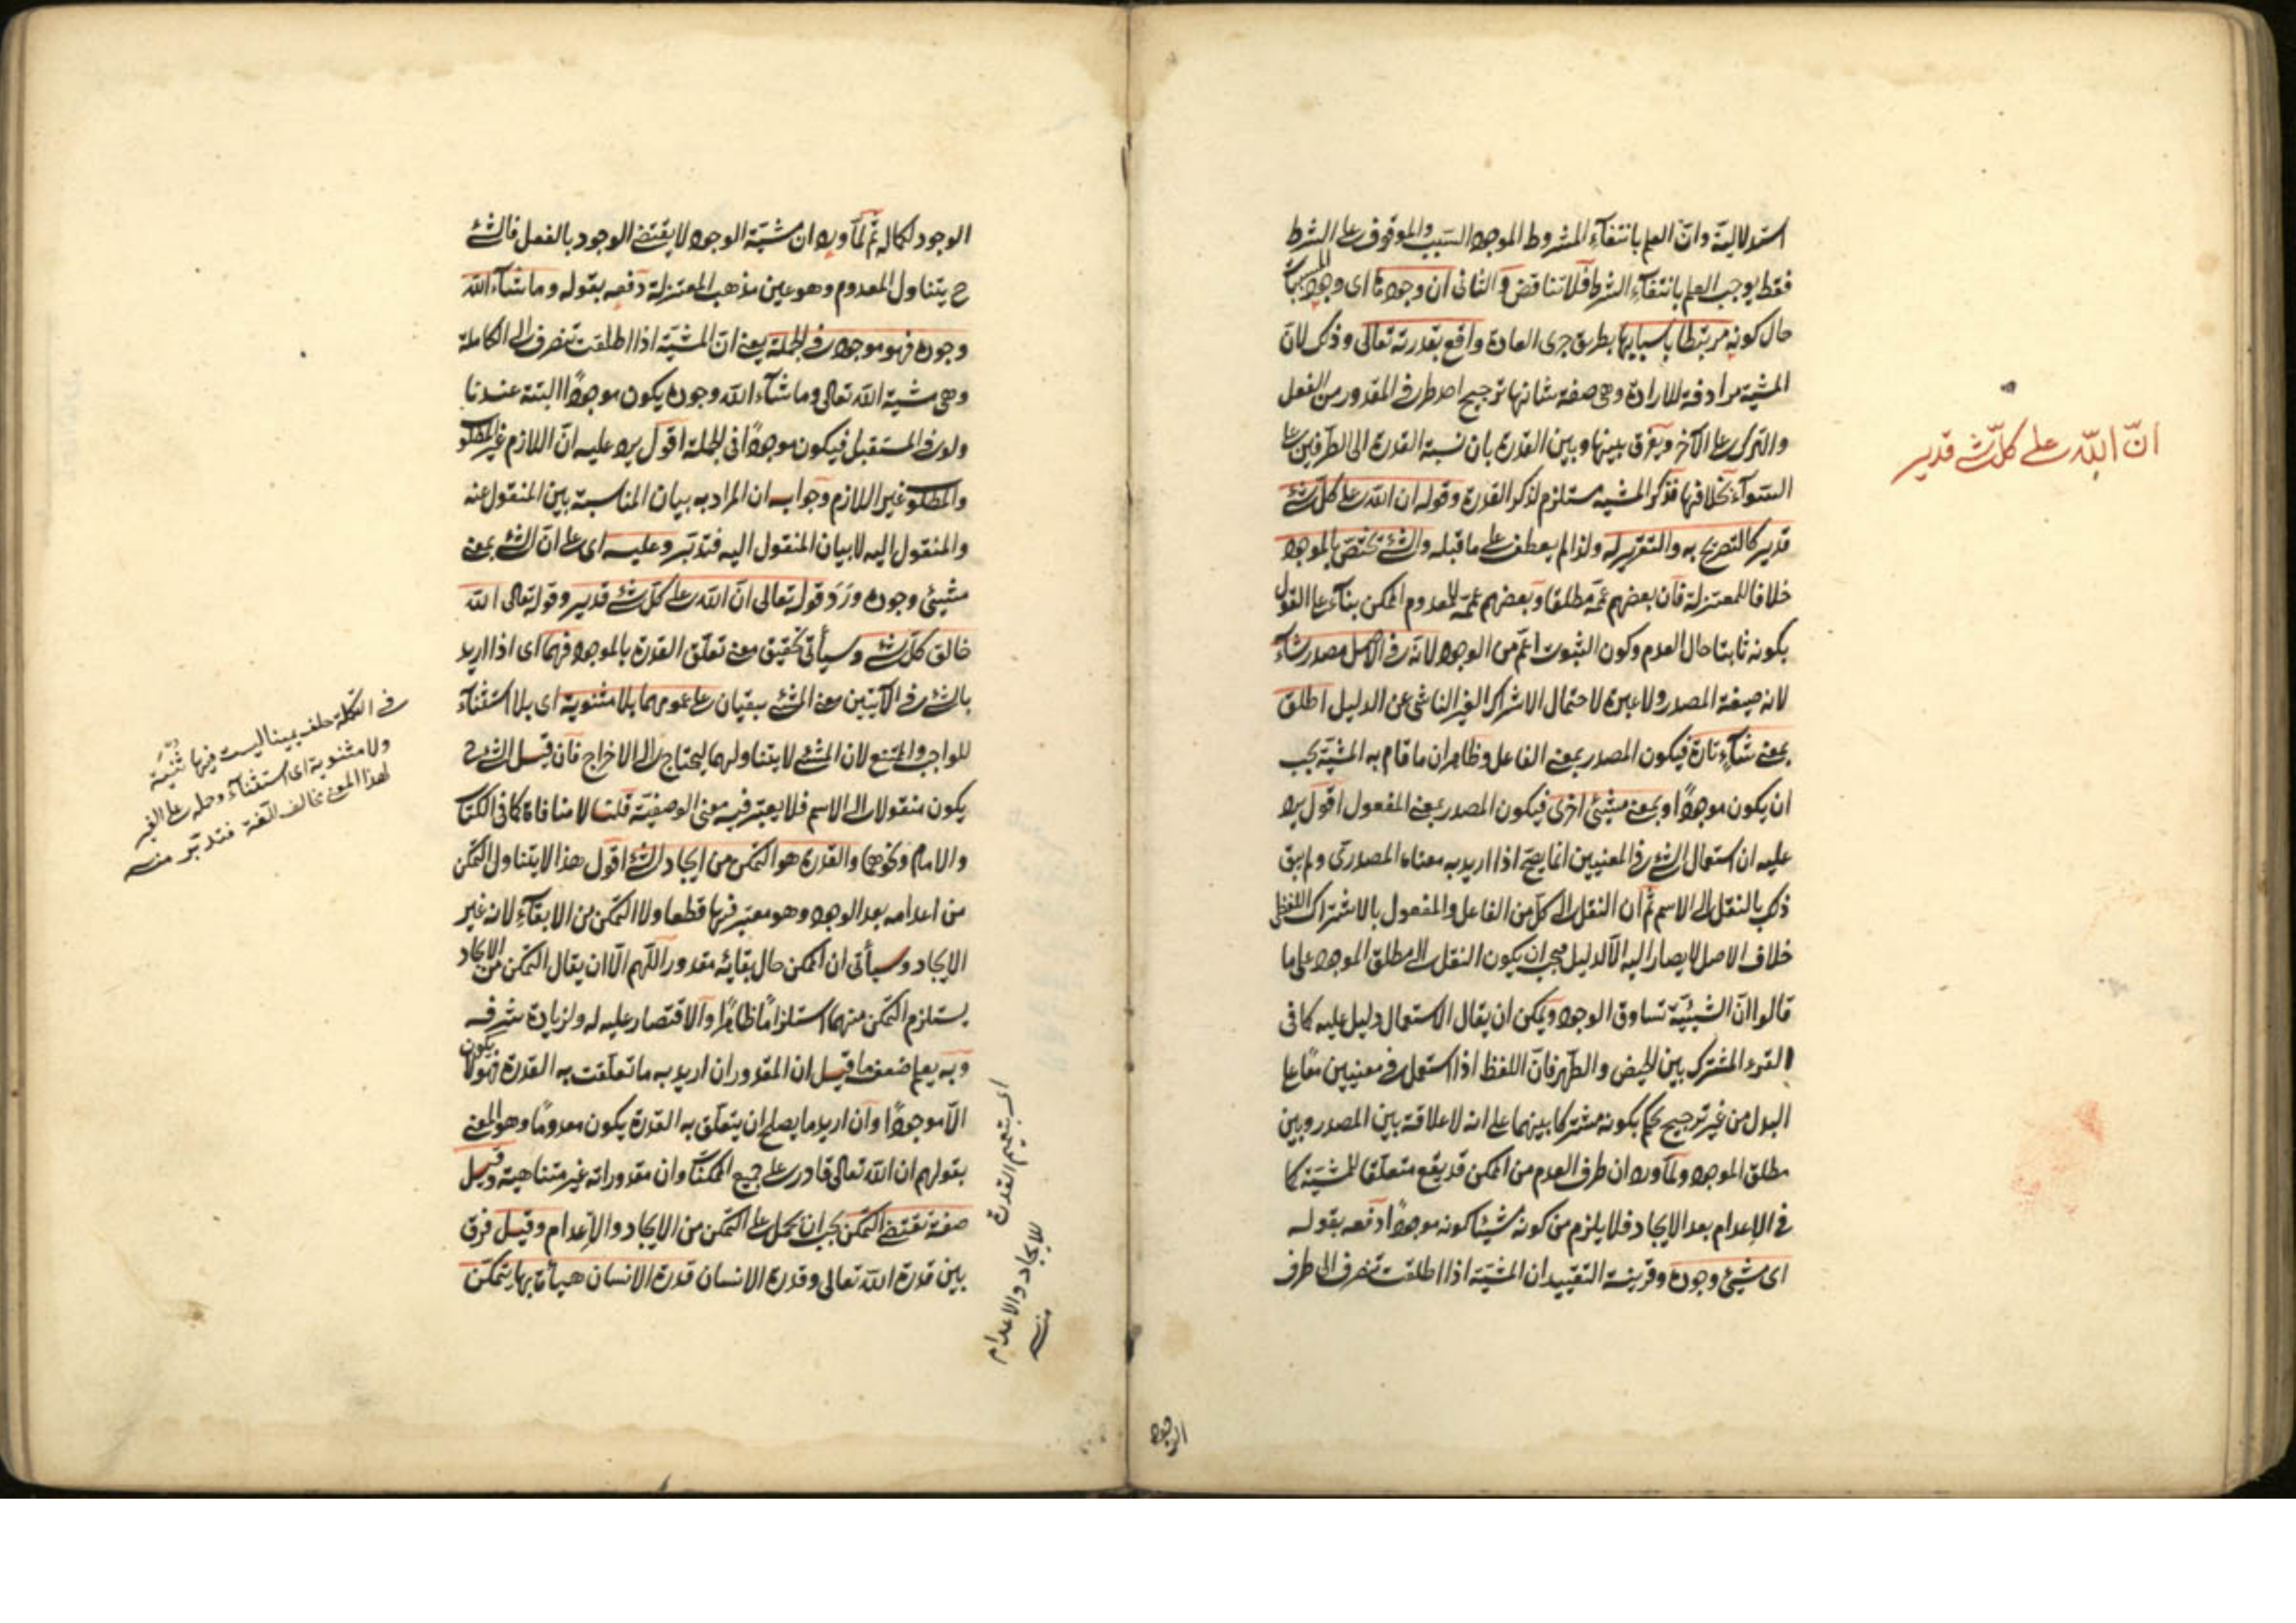 استدلالية وانّ العلم بانتفآء المشروط الموجود السبب والموقوف على الشرط
فقط يوجب العلم بانتفآء الشرط فلا تناقض والثانى ان وجودها اى وجود المسببات
حال كونه مرتبطا باسبابها بطريق جرى العادة واقع بقدرته تعالى وذلك لانّ
المشية مرادفة للارادة وهى صفة شانها ترجيح احد طرفى المقدور من الفعل
والترك على الآخر ويفرق بينها وبين القدرة بان نسبة القدرة الى الطرفين على
السّوآء بخلافها فذكر المشيه مستلزم لذكر القدرة وقوله ان الله على كلّ شئ
قدير كالتصريح به والتقرير له ولذا لم يعطف على ما قبله والشئ يختصّ بالموجود
خلافا للمعتزلة فان بعضهم عمّه مطلقا وبعضهم عمّه للمعدوم الممكن بنآء على القول
بكونه ثابتا حال العدم وكون الثبوت اعمّ من الوجود لانه فى الاصل مصدر شآء
لانه صيغة المصدر ولا عبرة لاحتمال الاشتراك الغير الناشى عن الدليل اطلق
بمعنى شآءٍ تارة فيكون المصدر بمعنى الفاعل وظاهر ان ما قام به المشيّة يجب
ان يكون موجودًا وبمعنى مشيئ اخرى فيكون المصدر بمعنى المفعول اقول يرد
عليه ان استعمال الشئ فى المعنيين انما يصحّ اذا اريد به معناه المصدرى ولم يبق
ذلك بالنقل الى الاسم ثم ان النقل الى كلّ من الفاعل والمفعول بالاشتراك اللفظى
خلاف الاصل لا يصار اليه الّا لدليل فيجب ان يكون النقل الى مطلق الموجود على ما
قالوا انّ الشيئيّة تساوق الوجود ويمكن ان يقال الاستعمال دليل عليه كما فى
القرء المشترك بين الحيض والطّهر فانّ اللفظ اذا استعمل فى معنيين معًا على
البدل من غير ترجيح يحكم بكونه مشتركا بينهما على انه لا علاقة بين المصدر وبين
مطلق الموجود ولمّا ورد ان طرف العدم من الممكن قد يقع متعلّقا للمشيّة كما
فى الاعدام بعد الايجاد فلا يلزم من كونه شيئا كونه موجودًا دفعه بقوله
اى مشيئ وجوده وقرينة التقييد ان المشيّة اذا اطلقت تنصرف الى طرف
انّ اللّه على كلّ شئ قدير
الوجود
الوجود لكماله ثمّ لمّا ورد ان مشيّة الوجود لا يقتضى الوجود بالفعل فالشئ
ح يتناول المعدوم وهو عين مذهب المعتزلة دفعه بقوله وما شآء اللّه
وجوده فهو موجود فى الجملة يعنى انّ المشيّة اذا اطلقت تنصرف الى الكاملة
وهى مشية الله تعالى وما شآء اللّه وجوده يكون موجودًا البتة عندنا
ولو فى المستقبل فيكون موجودًا فى الجملة اقول يرد عليه انّ اللازم غير المطلوب
والمطلوب غير اللازم وجوابه ان المراد به بيان المناسبة بين المنقول عنه
والمنقول اليه لا بيان المنقول اليه فتدبّر وعليه اى على انّ الشئ بمعنى
مشيئ وجوده ورَدَ قوله تعالى انّ اللّه على كلّ شئ قدير وقوله تعالى اللّه
خالق كلّ شئ وسيأتى تحقيق معنى تعلّق القدرة بالموجود فهما اى اذا اريد
بالشئ فى الآيتين معنى المشئ يبقيان على عمومهما بلا مثنوية اى بلا استثنآء
للواجب والممتنع لان المشئ لا يتناولهما ليحتاج الى الاخراج فان قيل الشئ ح
يكون منقولا الى الاسم فلا يعتبر فيه معنى الوصفيّة قلت لا منافاة كما فى الكتاب
والامام ونحوهما والقدرة هو التمكّن من ايجاد الشئ اقول هذا لا يتناول التمكّن
من اعدامه بعد الوجود وهو معتبر فيها قطعا ولا التمكّن من الابقآء لانه غير
الايجاد وسيأتى ان الممكن حال بقائه مقدور اللّهم الّا ان يقال التمكّن من الايجاد
يستلزم التمكّن منهما استلزامًا ظاهرًا والاقتصار عليه له ولزيادة شرفه
وبه يعلم ضعف ما قيل ان المقدور ان اريد به ما تعلّقت به القدرة فهو لا يكون
الّا موجودًا وان اريد ما يصلح ان يتعلّق به القدرة يكون معدومًا وهو المعنى
بقولهم ان الله تعالى قادر على جميع الممكنات وان مقدوراته غير متناهية وقيل
صفة تقتضى التمكّن يجب ان يحمل على التمكّن من الايجاد والاعدام وقيل فرق
بين قدرة اللّه تعالى وقدرة الانسان قدرة الانسان هيأة بها يتمكّن
فى التكملة حلف يمينا ليست فيها ثنيّة
ولا مثنوية اى استثنآء وحمله على الغير
لهذا المعنى مخالف للّغة فتدبّر منه
اى بتعميم القدرة
للايجاد والاعدام
منه